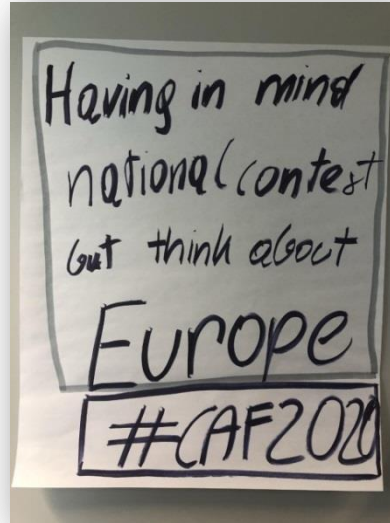 Having in mind
national contest
but think about
Europe
#CAF2020